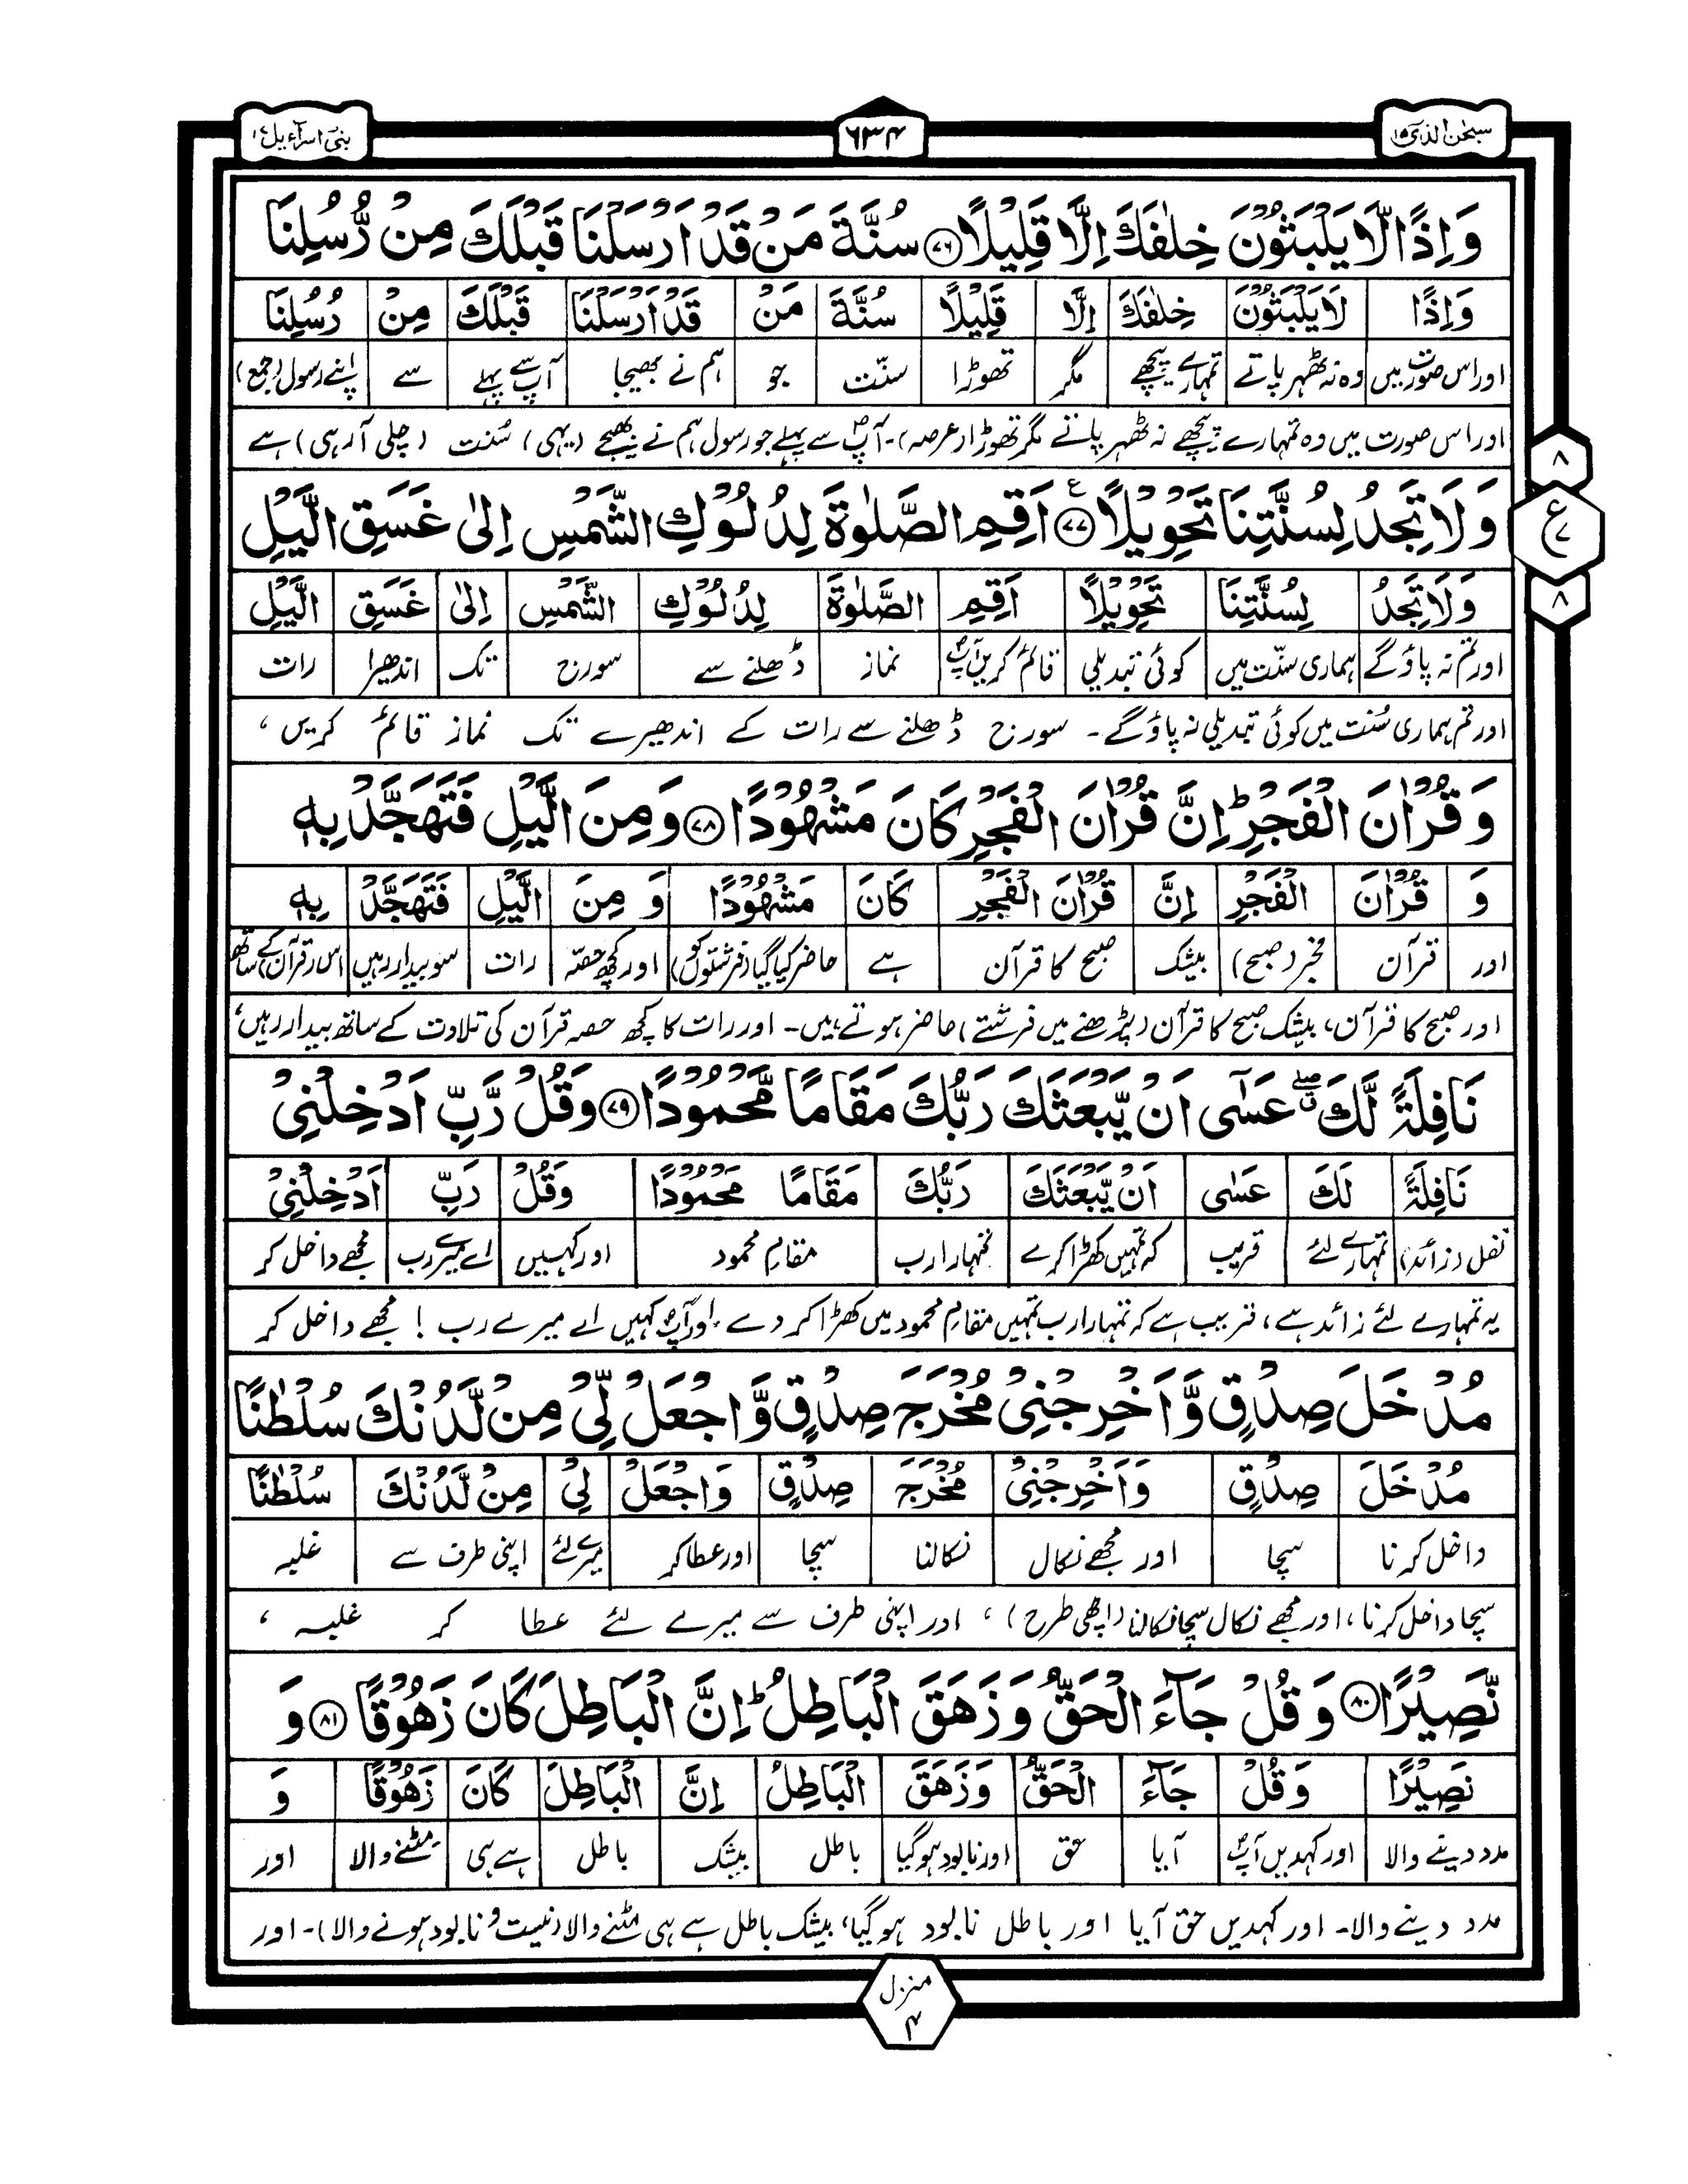 سبحٰن الذی ١٥
٦٣٤
بنی اسرآءیل ١٧
وَاِذًا لَّا يَلْبَثُوْنَ خِلٰفَكَ اِلَّا قَلِيْلًا ﴿٧٦﴾ سُنَّةَ مَنْ قَدْ اَرْسَلْنَا قَبْلَكَ مِنْ رُّسُلِنَا
وَاِذًا | لَا يَلْبَثُوْنَ | خِلٰفَكَ | اِلَّا | قَلِيْلًا | سُنَّةَ | مَنْ | قَدْ اَرْسَلْنَا | قَبْلَكَ | مِنْ | رُسُلِنَا
اور اس صورت میں | وہ نہ ٹھہر پاتے | تمہارے پیچھے | مگر | تھوڑا | سنّت | جو | ہم نے بھیجا | آپؐ سے پہلے | سے | اپنے رسول (جمع)
اور اس صورت میں وہ تمہارے پیچھے نہ ٹھہر پاتے مگر تھوڑا (عرصہ)۔ آپؐ سے پہلے جو رسول ہم نے بھیجے (یہی) سُنت (چلی آ رہی) ہے
وَلَا تَجِدُ لِسُنَّتِنَا تَحْوِيْلًا ﴿٧٧﴾ ع اَقِمِ الصَّلٰوةَ لِدُلُوْكِ الشَّمْسِ اِلٰى غَسَقِ الَّيْلِ
٨
ع
٧
٨
وَلَا تَجِدُ | لِسُنَّتِنَا | تَحْوِيْلًا | اَقِمِ | الصَّلٰوةَ | لِدُلُوْكِ | الشَّمْسِ | اِلٰى | غَسَقِ | الَّيْلِ
اور تم نہ پاؤگے | ہماری سنّت میں | کوئی تبدیلی | قائم کریں آپؐ | نماز | ڈھلنے سے | سورج | تک | اندھیرا | رات
اور تم ہماری سُنت میں کوئی تبدیلی نہ پاؤگے۔ سورج ڈھلنے سے رات کے اندھیرے تک نماز قائم کریں،
وَقُرْاٰنَ الْفَجْرِ ؕ اِنَّ قُرْاٰنَ الْفَجْرِ كَانَ مَشْهُوْدًا ﴿٧٨﴾ وَمِنَ الَّيْلِ فَتَهَجَّدْ بِهٖ
وَ | قُرْاٰنَ | الْفَجْرِ | اِنَّ | قُرْاٰنَ الْفَجْرِ | كَانَ | مَشْهُوْدًا | وَ مِنَ | الَّيْلِ | فَتَهَجَّدْ | بِهٖ
اور | قرآن | فجر (صبح) | بیشک | صبح کا قرآن | ہے | حاضر کیا گیا (فرشتوں کو) | اور کچھ حصّہ | رات | سو بیدار رہیں | اس (قرآن) کے ساتھ
اور صبح کا قرآن، بیشک صبح کا قرآن (پڑھنے میں فرشتے) حاضر ہوتے ہیں۔ اور رات کا کچھ حصہ قرآن کی تلاوت کے ساتھ بیدار رہیں،
نَافِلَةً لَّكَ ۖ عَسٰٓى اَنْ يَّبْعَثَكَ رَبُّكَ مَقَامًا مَّحْمُوْدًا ﴿٧٩﴾ وَقُلْ رَّبِّ اَدْخِلْنِيْ
نَافِلَةً | لَكَ | عَسٰى | اَنْ يَّبْعَثَكَ | رَبُّكَ | مَقَامًا مَحْمُوْدًا | وَقُلْ | رَبِّ | اَدْخِلْنِيْ
نفل (زائد) | تمہارے لئے | قریب | کہ تمہیں کھڑا کرے | تمہارا رب | مقامِ محمود | اور کہیں | اے میرے رب | مجھے داخل کر
یہ تمہارے لئے زائد ہے، قریب ہے کہ تمہارا رب تمہیں مقامِ محمود میں کھڑا کردے۔ اور آپؐ کہیں اے میرے رب ! مجھے داخل کر
مُدْخَلَ صِدْقٍ وَّاَخْرِجْنِيْ مُخْرَجَ صِدْقٍ وَّاجْعَلْ لِّيْ مِنْ لَّدُنْكَ سُلْطٰنًا
مُدْخَلَ | صِدْقٍ | وَاَخْرِجْنِيْ | مُخْرَجَ | صِدْقٍ | وَاجْعَلْ | لِيْ | مِنْ لَّدُنْكَ | سُلْطٰنًا
داخل کرنا | سچا | اور مجھے نکال | نکالنا | سچا | اور عطا کر | میرے لئے | اپنی طرف سے | غلبہ
سچا داخل کرنا، اور مجھے نکال سچا نکالنا (اچھی طرح)، اور اپنی طرف سے میرے لئے عطا کر غلبہ،
نَّصِيْرًا ﴿٨٠﴾ وَقُلْ جَآءَ الْحَقُّ وَزَهَقَ الْبَاطِلُ ؕ اِنَّ الْبَاطِلَ كَانَ زَهُوْقًا ﴿٨١﴾ وَ
نَصِيْرًا | وَقُلْ | جَآءَ | الْحَقُّ | وَزَهَقَ | الْبَاطِلُ | اِنَّ | الْبَاطِلَ | كَانَ | زَهُوْقًا | وَ
مدد دینے والا | اور کہدیں آپؐ | آیا | حق | اور نابود ہوگیا | باطل | بیشک | باطل | ہے ہی | مٹنے والا | اور
مدد دینے والا۔ اور کہدیں حق آیا اور باطل نابود ہوگیا، بیشک باطل ہے ہی مٹنے والا (نیست و نابود ہونے والا)۔ اور
منزل
٤